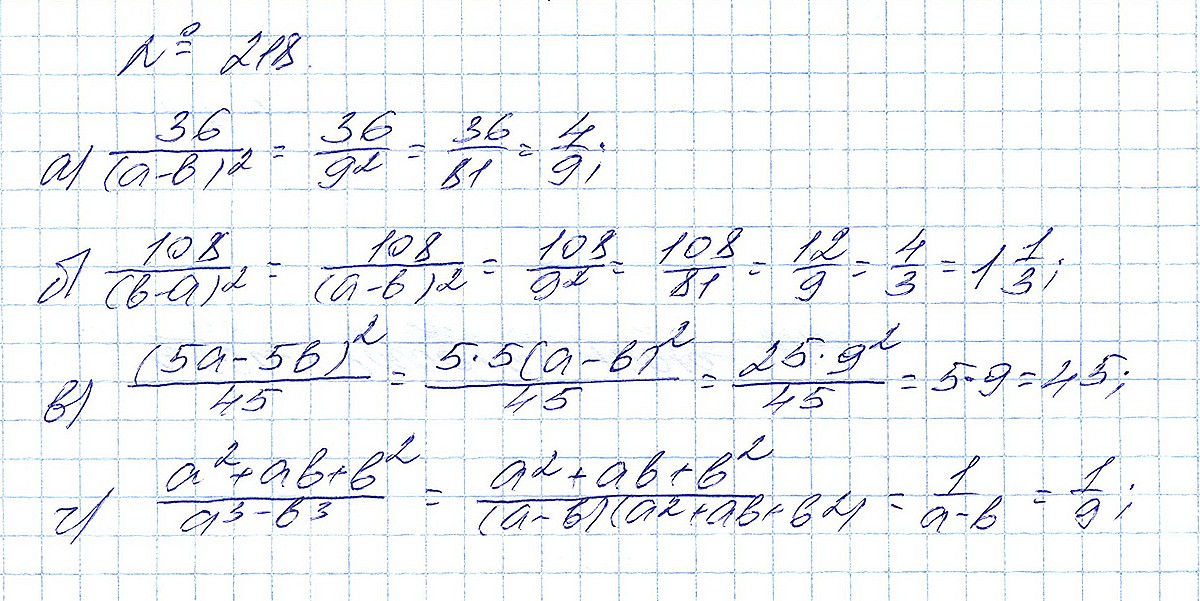 № 218.
а) 36/(a-b)² = 36/9² = 36/81 = 4/9;
б) 108/(b-a)² = 108/(a-b)² = 108/9² = 108/81 = 12/9 = 4/3 = 1 1/3;
в) (5a-5b)²/45 = 5·5(a-b)²/45 = 25·9²/45 = 5·9 = 45;
г) a²+ab+b²/a³-b³ = a²+ab+b²/(a-b)(a²+ab+b²) = 1/a-b = 1/9;